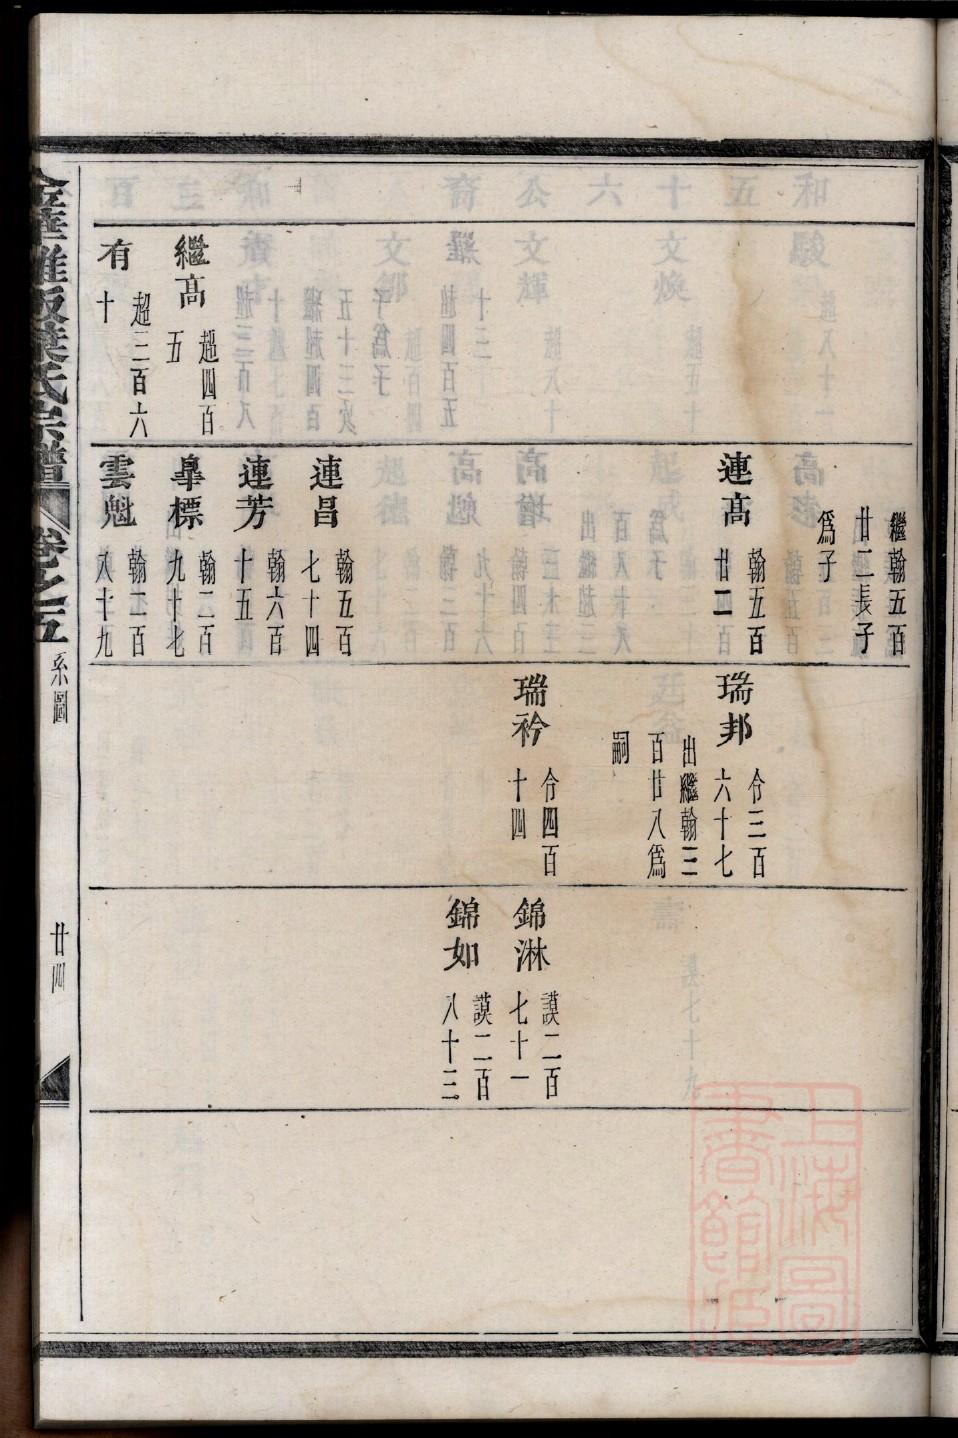 繼高
超四百
五
有
超三百六
十
繼翰五百
廿二長子
爲子
連高
翰五百
廿二
連昌
翰五百
七十四
連芳
翰六百
十五
皐標
翰二百
九十七
雲魁
翰二百
八十九
瑞邦
令三百
六十七
出繼翰三
百廿八爲
嗣
瑞衿
令四百
十四
錦淋
謨二百
七十一
錦如
謨二百
八十三
葉氏宗譜
卷之五
系圖
廿四
上海圖
書館藏